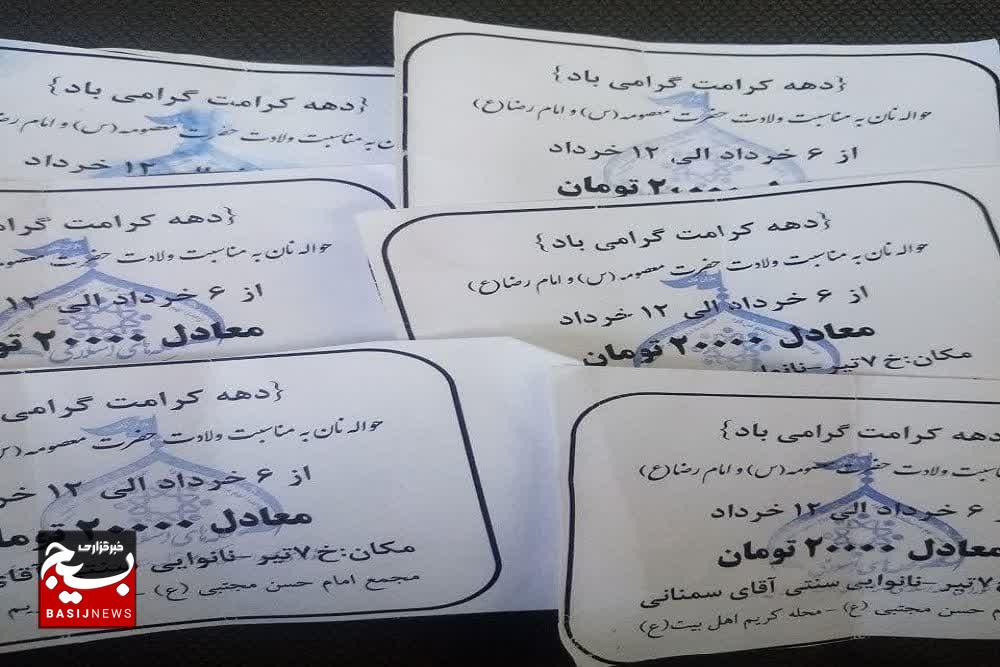 {دهه کرامت گرامی باد}
حواله نان به مناسبت ولادت حضرت معصومه (س) و امام رضا(ع)
از ۶ خرداد الی ۱۲ خرداد
۲۰۰۰۰ تومان
{دهه کرامت گرامی باد}
مناسبت ولادت حضرت معصومه (س) و امام رضا
۱۲ خرداد
{دهه کرامت گرامی باد}
حواله نان به مناسبت ولادت حضرت معصومه (س) و امام رضا(ع)
از ۶ خرداد الی ۱۲ خرداد
معادل ۲۰۰۰۰ تومان
مکان:خ ۷تیر-نانوایی
{دهه کرامت گرا
حواله نان به مناسبت ولادت حضرت معصومه
از ۶ خرداد الی ۱۲
معادل ۲۰۰۰۰ تو
{دهه کرامت گرامی
حواله نان به مناسبت ولادت حضرت معصومه (س)
از ۶ خرداد الی ۱۲ خرد
معادل ۲۰۰۰۰ توما
مکان:خ ۷تیر-نانوایی سنتی آقای
مجمع امام حسن مجتبی (ع) -
دهه کرامت گرامی باد}
ولادت حضرت معصومه (س) و امام رضا(ع)
۶ خرداد الی ۱۲ خرداد
معادل ۲۰۰۰۰ تومان
۷تیر-نانوایی سنتی آقای سمنانی
حسن مجتبی (ع) - محله کریم اهل بیت(ع)
خبرگزاری
بسیج
BASIJNEWS